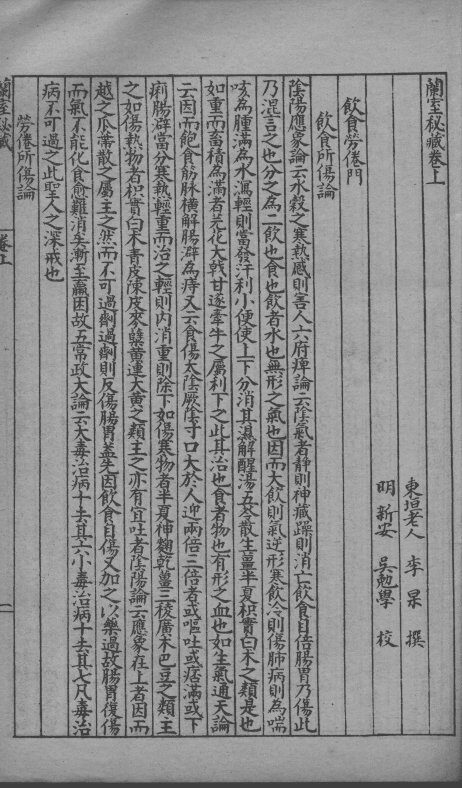 蘭室秘藏卷上
東垣老人 李 杲 撰
明 新安 吳勉學 校
飲食勞倦門
飲食所傷論
陰陽應象論云水穀之寒熱感則害人六府痺論云陰氣者靜則神藏躁則消亡飲食自倍腸胃乃傷此
乃混言之也分之為二飲也食也飲者水也無形之氣也因而大飲則氣逆形寒飲冷則傷肺病則為喘
咳為腫滿為水瀉輕則當發汗利小便使上下分消其濕解酲湯五苓散生薑半夏枳實白朮之類是也
如重而畜積為滿者芫花大戟甘遂牽牛之屬利下之此其治也食者物也有形之血也如生氣通天論
云因而飽食筋脉橫解腸澼為痔又云食傷太陰厥陰寸口大於人迎兩倍三倍者或嘔吐或痞滿或下
痢腸澼當分寒熱輕重而治之輕則內消重則除下如傷寒物者半夏神麴乾薑三稜廣朮巴豆之類主
之如傷熱物者枳實白朮青皮陳皮麥蘗黃連大黃之類主之亦有宜吐者陰陽論云應象在上者因而
越之瓜蒂散之屬主之然而不可過劑過劑則反傷腸胃蓋先因飲食自傷又加之以藥過故腸胃復傷
而氣不能化食愈難消矣漸至羸困故五常政大論云大毒治病十去其六小毒治病十去其七凡毒治
病不可過之此聖人之深戒也
勞倦所傷論
蘭室秘藏 卷上 一